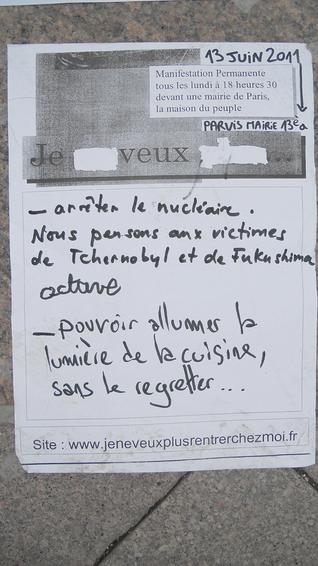 13 JUIN 2011
Manifestation Permanente
tous les lundi à 18 heures 30
devant une mairie de Paris,
la maison du peuple
PARVIS MAIRIE 13è
Je veux ...
— arrêter le nucléaire.
Nous pensons aux victimes
de Tchernobyl et de Fukushima
— pouvoir allumer la
lumière de la cuisine,
sans le regretter...
Site : www.jeneveuxplusrentrerchezmoi.fr